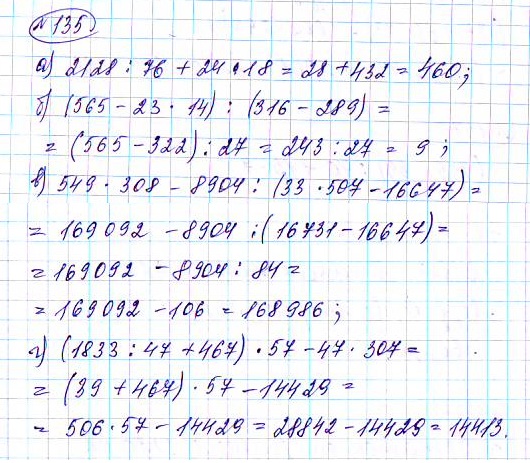 №135
а) 2128 : 76 + 24 · 18 = 28 + 432 = 460;
б) (565 - 23 · 14) : (316 - 289) =
= (565 - 322) : 27 = 243 : 27 = 9;
в) 549 · 308 - 8904 : (33 · 507 - 16647) =
= 169092 - 8904 : (16731 - 16647) =
= 169092 - 8904 : 84 =
= 169092 - 106 = 168986;
г) (1833 : 47 + 467) · 57 - 47 · 307 =
= (39 + 467) · 57 - 14429 =
= 506 · 57 - 14429 = 28842 - 14429 = 14413.